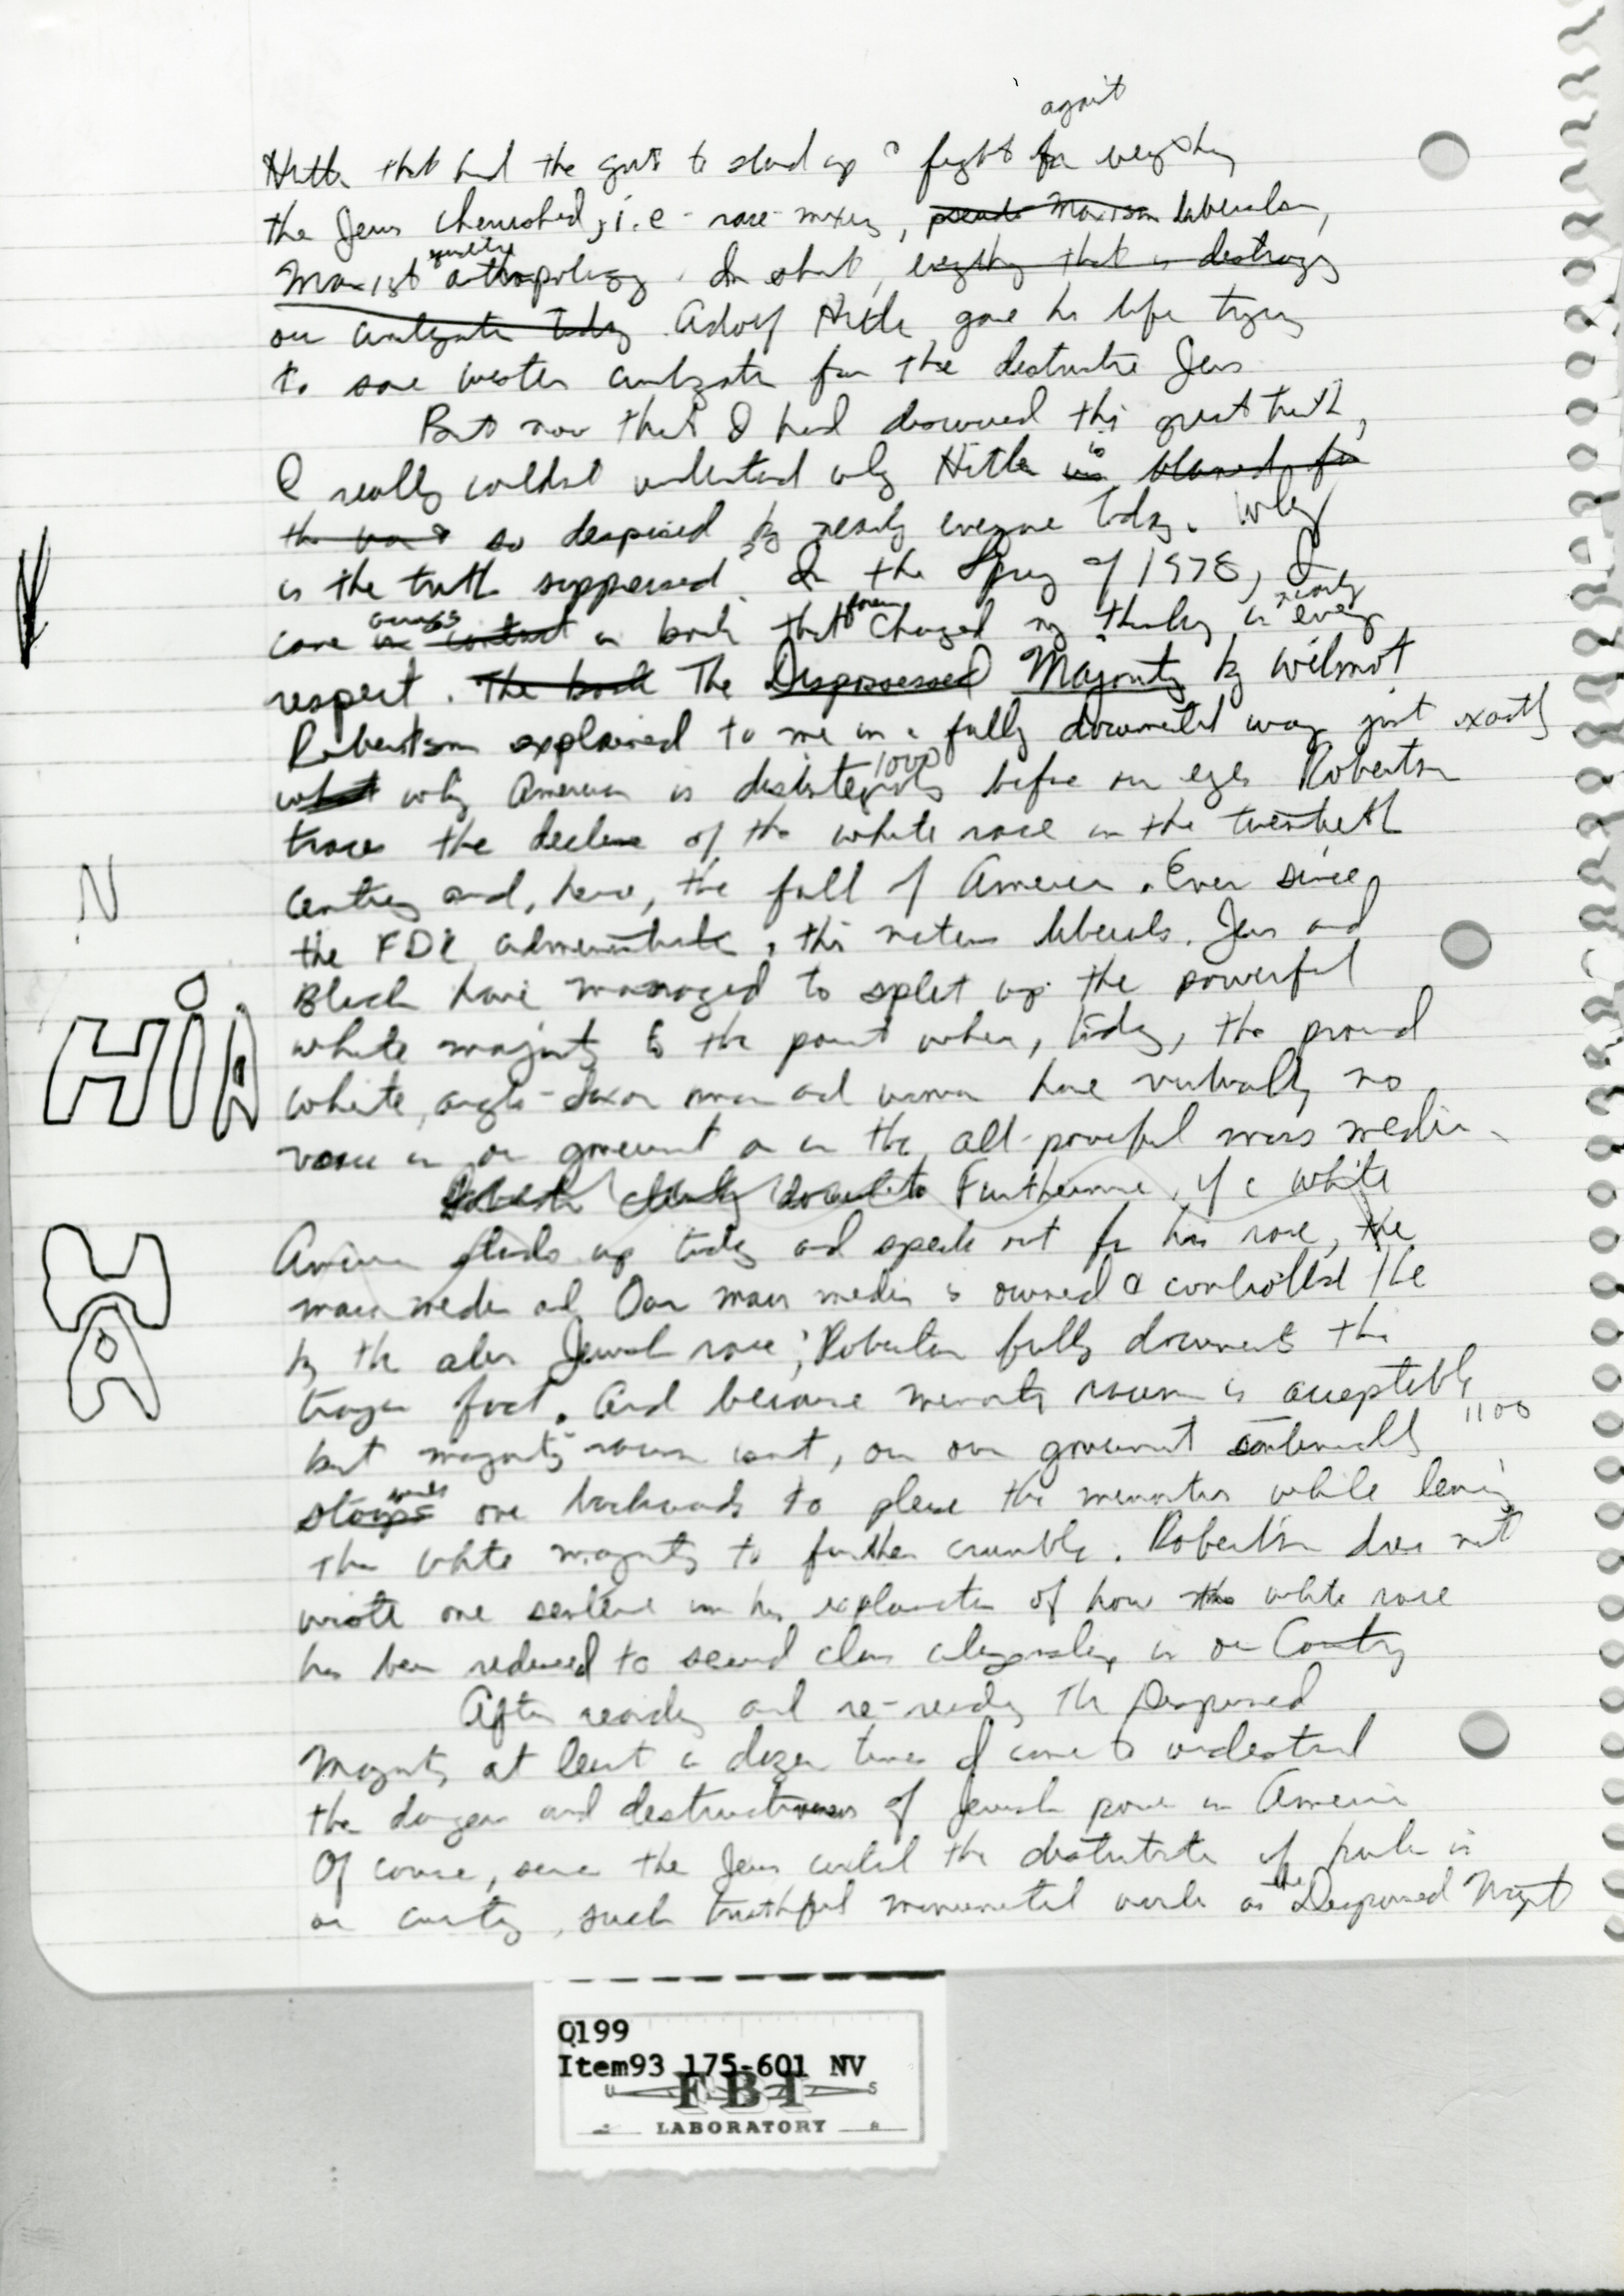 against
Hitler that had the guts to stand up & fight for everything
the Jews cherished, i.e - race-mixing, pseudo Marxism liberalism,
equality
Marxist anthropology. In short, everything that is destroying
our civilization today Adolf Hitler gave his life trying
to save western civilization from the destructive Jews
But now that I had discovered this great truth,
I really couldn't understand why Hitler is blamed for
the war & so despised by nearly everyone today. Why
is the truth suppressed? In the Spring of 1978, I
came in contact across a book that changed my thinking in nearly every
respect. The book The Dispossessed Majority by Wilmot
Robertson explained to me in a fully documented way just exactly
1000
what why America is disintegrating before our eyes Robertson
traces the decline of the white race in the twentieth
N
century and, hence, the fall of America. Ever since
the FDR administration, this nations liberals, Jews and
Blacks have managed to split up the powerful
HiA
white majority to the point where, today, the proud
white, anglo-saxon man and woman have virtually no
voice in our government or in the all-powerful mass media
Furthermore, if a white
American stands up today and speaks out for his race, the
mass media and Our mass media is owned & controlled the
by the alien Jewish race; Robertson fully documents this
tragic fact. And because minority racism is acceptable
1100
but majority racism isn't, our own government continually
stoops one backwards to please the minorities while leaving
the white majority to further crumble. Robertson does not
wrote one sentence in his explanation of how the white race
has been reduced to second class in our Country
After reading and re-reading The Dispossessed
Majority at least a dozen times I came to understand
the danger and destructiveness of Jewish power in America
Of course, since the Jews control the distribution of books in
our country, such truthful monumental works as the Dispossessed Majority
Q199
Item93 175-601 NV
U S
FBI
LABORATORY